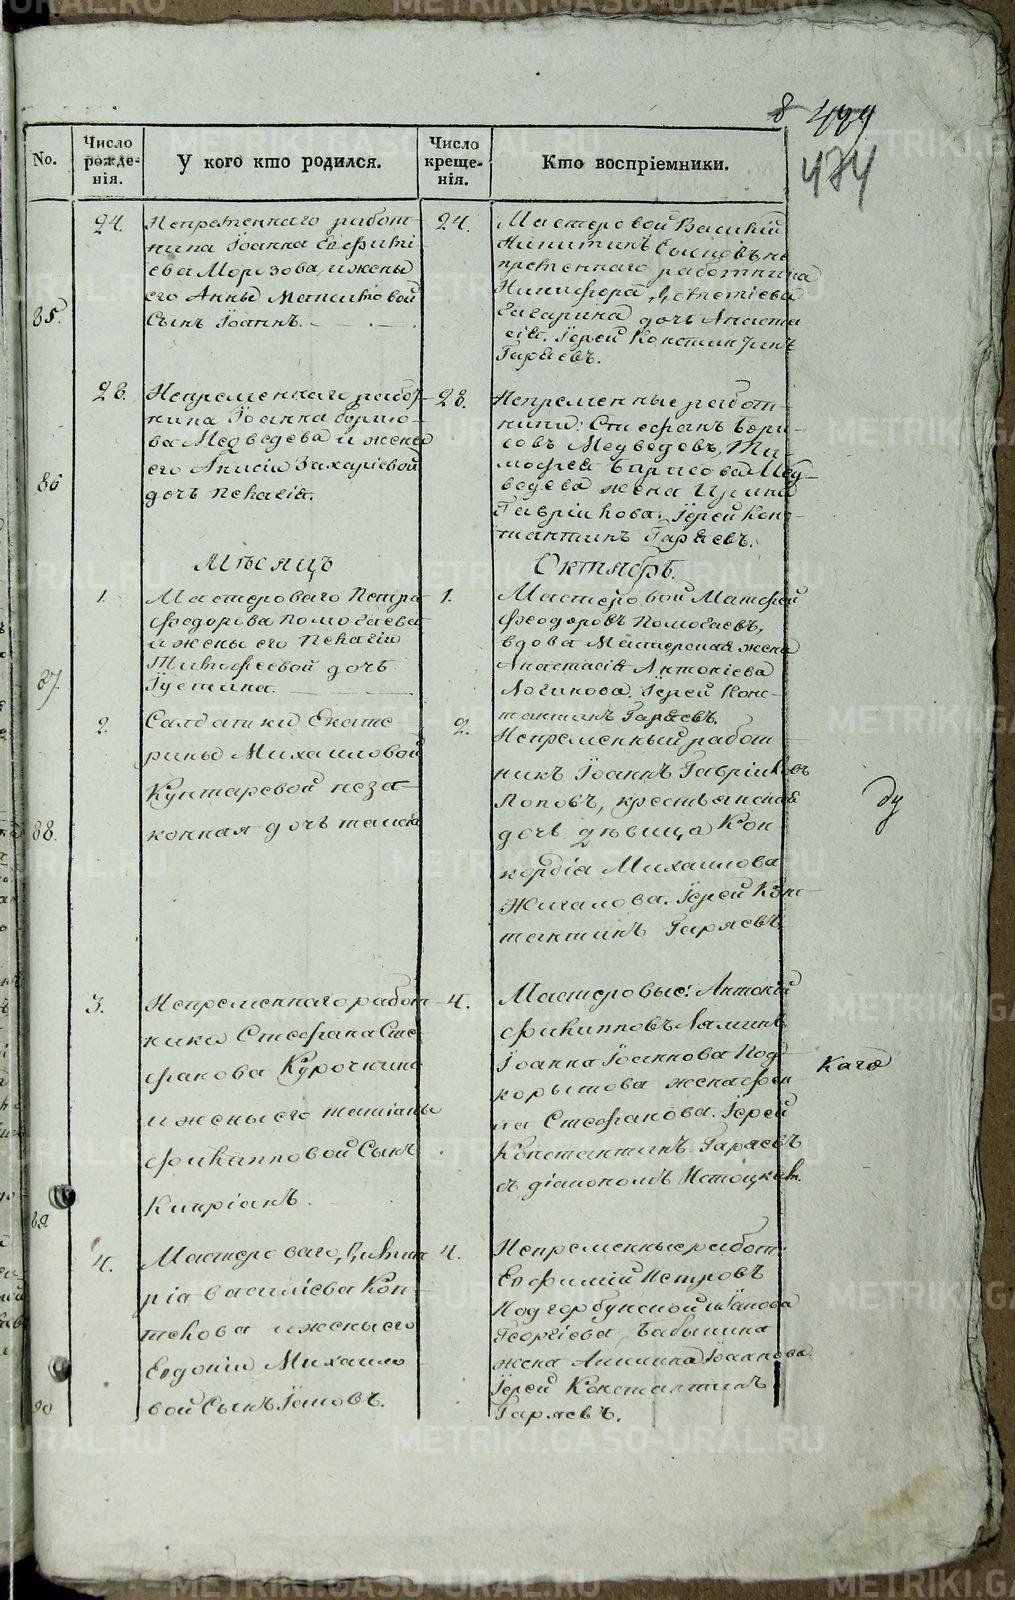 8 499
474
No.
Число рожде-нія.
У кого кто родился.
Число креще-нія.
Кто воспріемники.
85.
24.
Непременнаго работ-
ника Іоанна Евфимі-
ева Морозова, и жены
его Анны
Сынъ Іоаннъ.
24.
Мастеровой Василій
Никитинъ
пременнаго работника
Никифора
Гагарина дочь Анаста
сія. Іерей Константинъ
Гаряевъ.
86
28.
Непременнаго работ-
ника Іоанна Борисо-
ва Медведева и жены
его Анисіи Захаріевой
дочь Пелагія.
28.
Непременные работ-
ники: Стефанъ Бори-
совъ Медведовъ, Ти-
мофея Барисова Мед-
ведева жена Ирина
Гаврилова. Іерей Конс-
тантинъ Гаряевъ.
Мѣсяцъ
Октябрь.
87.
1.
Мастероваго Петра
Федорова Помогаева
и жены его Пелагіи
Тимофеевой дочь
Іустина.
1.
Мастеровой Матфей
Феодоровъ Помогаевъ,
вдова Мастерская жена
Анастасія Антоніева
Логинова. Іерей Конс-
тантинъ Гаряевъ.
88.
2.
Салдатки Екате-
рины Михаиловой
Кунтаревой неза-
конная дочь таисія
2.
Непременный работ
никъ Іоаннъ Гавриловъ
Поповъ, крестьянская
дочь девица Кон
кордіа Михаилова
Жигалова. Іерей Конс-
тантинъ Гаряевъ
89.
3.
Непременнаго работ
ника Стефана Сте
фанова Курочкина
и жены его татіаны
Филипповой Сынъ
Кипріанъ.
4.
Мастеровые: Антоній
Филипповъ Ляминъ
Іоанна Іоаннова Под
корытова жена Фек
ла Стефанова. Іерей
Константинъ Гаряевъ
съ діакономъ
90
4.
Мастероваго Димит
рія Василіева Кон-
Евдокіи Михаило
вой Сынъ Іоновъ.
4.
Непременные работ.
Евфимій Петровъ
Подгорбунской и Іакова
Георгіева Бабыкина
жена Акилина Іоаннова
Іерей Константинъ
Гаряевъ.
METRIKI.GASO-URAL.RU